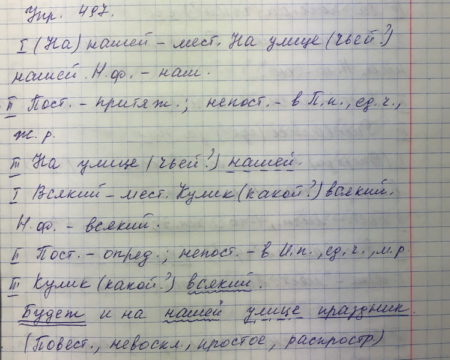 Упр. 497.
I (На) нашей – мест. На улице (чьей?)
нашей. Н.ф. – наш.
II Пост. – притяж.; непост. – в П.п., ед.ч.,
ж.р.
III На улице (чьей?) нашей.
I Всякий – мест. Кулик (какой?) всякий.
Н.ф. – всякий.
II Пост. – опред.; непост. – в И.п., ед.ч., м.р.
III Кулик (какой?) всякий.
Будет и на нашей улице праздник.
(Повест., невоскл, простое, распростр)